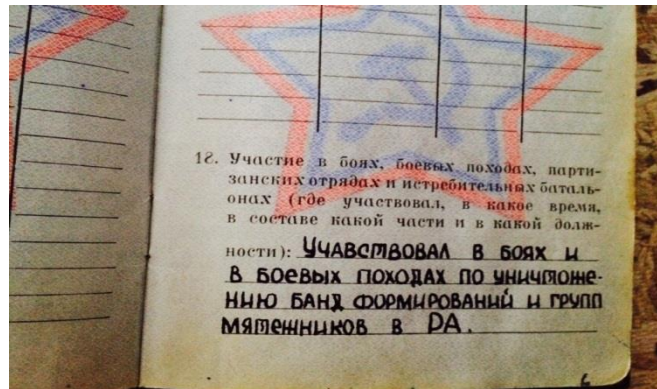 12. Участие в боях, боевых походах, парти-
занских отрядах и истребительных баталь-
онах (где участвовал, в какое время,
в составе какой части и в какой долж-
ности): УЧАВСТВОВАЛ В БОЯХ И
В БОЕВЫХ ПОХОДАХ ПО УНИЧТОЖЕ-
НИЮ БАНД ФОРМИРОВАНИЙ И ГРУПП
МЯТЕЖНИКОВ В РА.